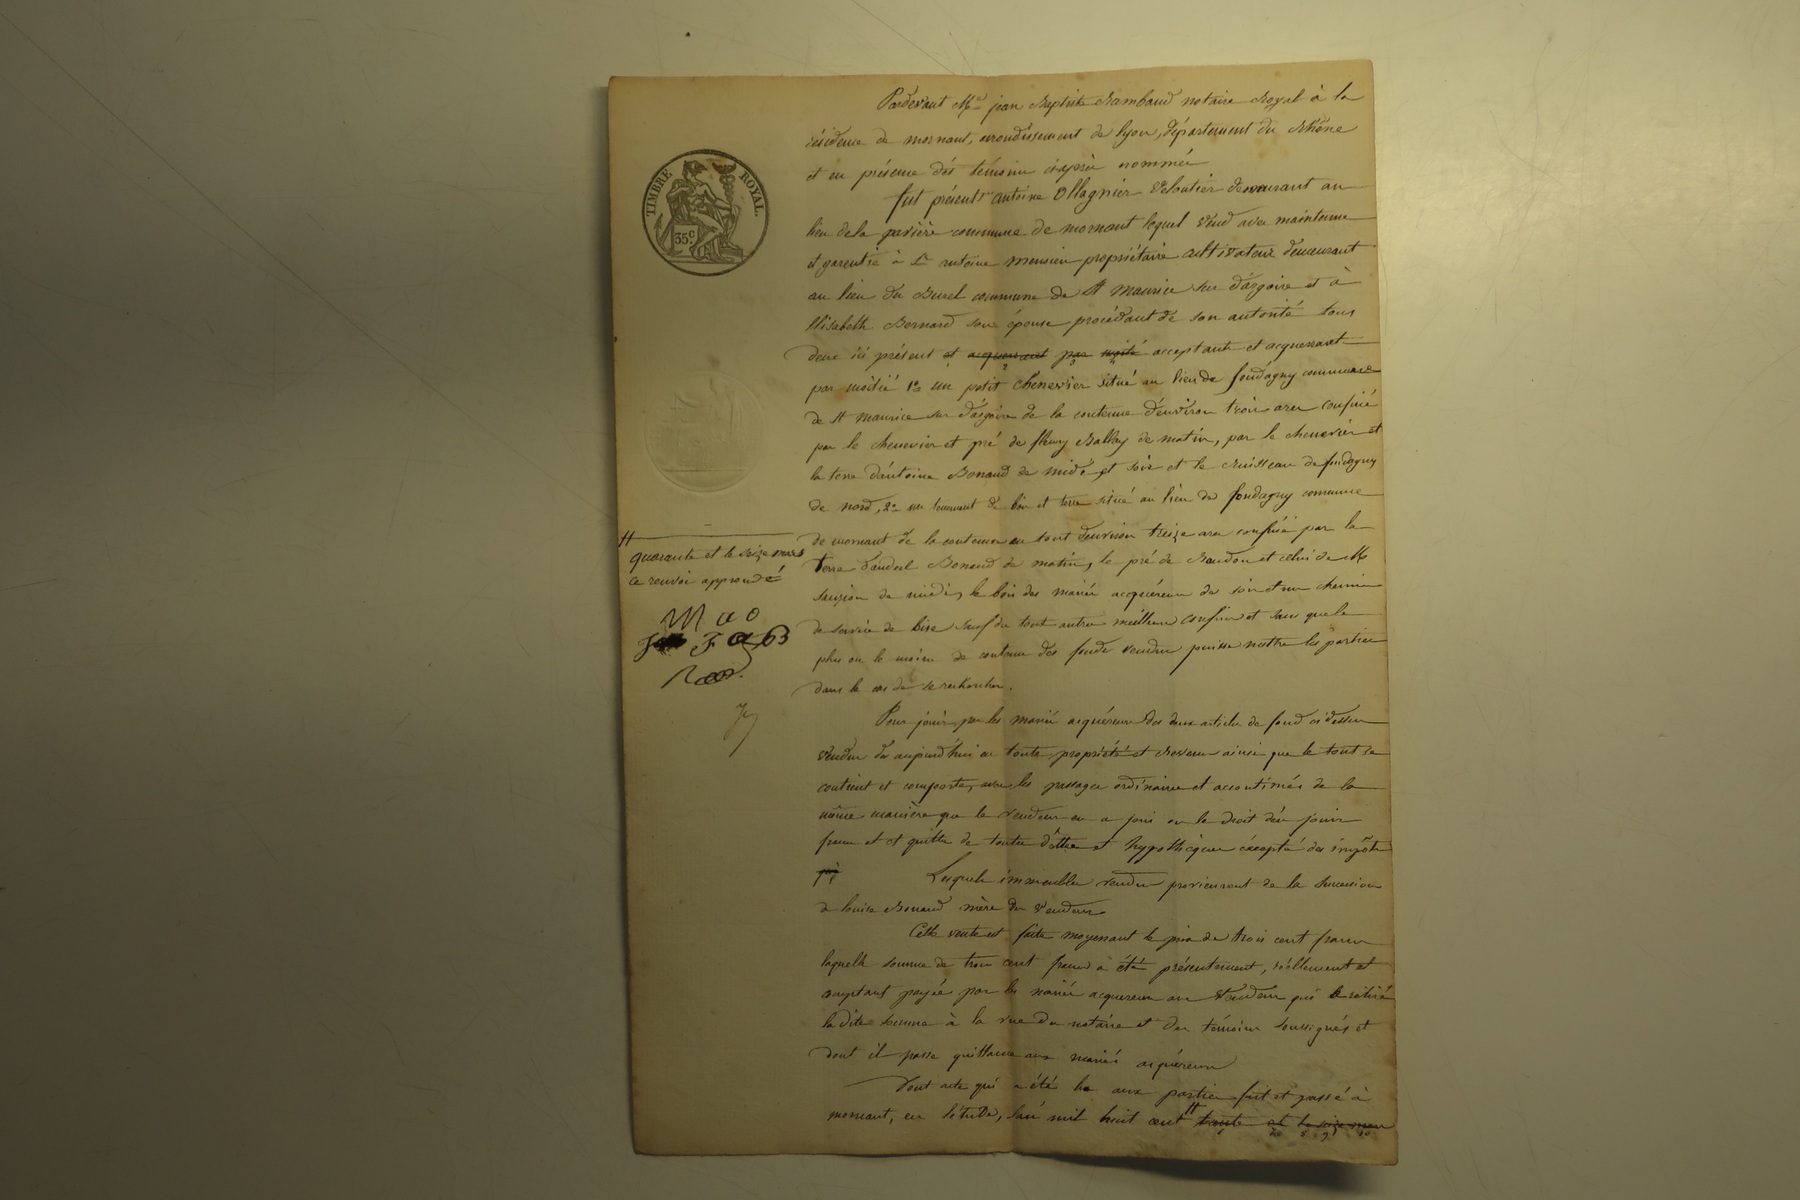 Pardevant Me jean Baptiste Rambaud notaire Royal à la
résidence de mornant, arrondissement de lyon, département du Rhône
et en présence des témoins ciaprès nommés
fut présent Sr antoine Ollagnier veloutier demeurant au
lieu de la commune de mornant lequel vend avec maintenue
et garentie à Sr antoine propriétaire cultivateur demeurant
au lieu du Burel commune de St Maurice sur d'argoire et à
Elisabeth Bernard son épouse procédant de son autorité tous
deux ici présent et acquerrant par moitié acceptants et acquerrant
par moitié 1o un petit chenevier situé au lieu de fondagny commune
de St Maurice sur d'argoire de la contenue d'environ trois ares confiné
par le chenevier et pré de fleury de matin, par le chenevier et
la terre d'antoine Bonnard de midi et soir et le Ruisseau de fondagny
de nord, 2o un tenement de bois et terre situé au lieu de fondagny commune
de mornant de la contenue en tout d'environ treize ares confiné par la
terre Bonnard de matin, le pré de et celui de Mr
de midi, le bois des mariés acquéreurs de soir et un chemin
de service de bise sauf du tout autres meilleurs confins et sans que le
plus ou le moins de contenue des fonds vendus puisse mettre les parties
dans le cas de se rechercher.
Pour jouir par les mariés acquéreurs des deux articles de fond ci dessus
vendus dès aujourd'hui en toute propriété et ainsi que le tout se
contient et comporte, avec les passages ordinaires et accoutimés de la
même manière que le vendeur en a joui ou le droit d'en jouir
francs et et quitte de toutes dettes et hypothèques excepté des impôts
Lesquels immeubles vendus proviennent de la succession
de louise Bonnard mère du vendeur
Cette vente est faite moyenant le prix de trois cent francs
laquelle somme de trois cent francs à été présentement, réellement et
comptant payée par les mariés acquereurs au vendeur qui la retiré
la dite somme à la vue du notaire et des témoins soussignés et
dont il passe quittance aux mariés acquéreurs
Dont acte qui a été lu aux parties fait et passé à
mornant, en l'étude, l'an mil huit cent # trente et le seize mars
TIMBRE ROYAL.
35c
#
quarante et le seize mars
ce renvoi approuvé
M a o